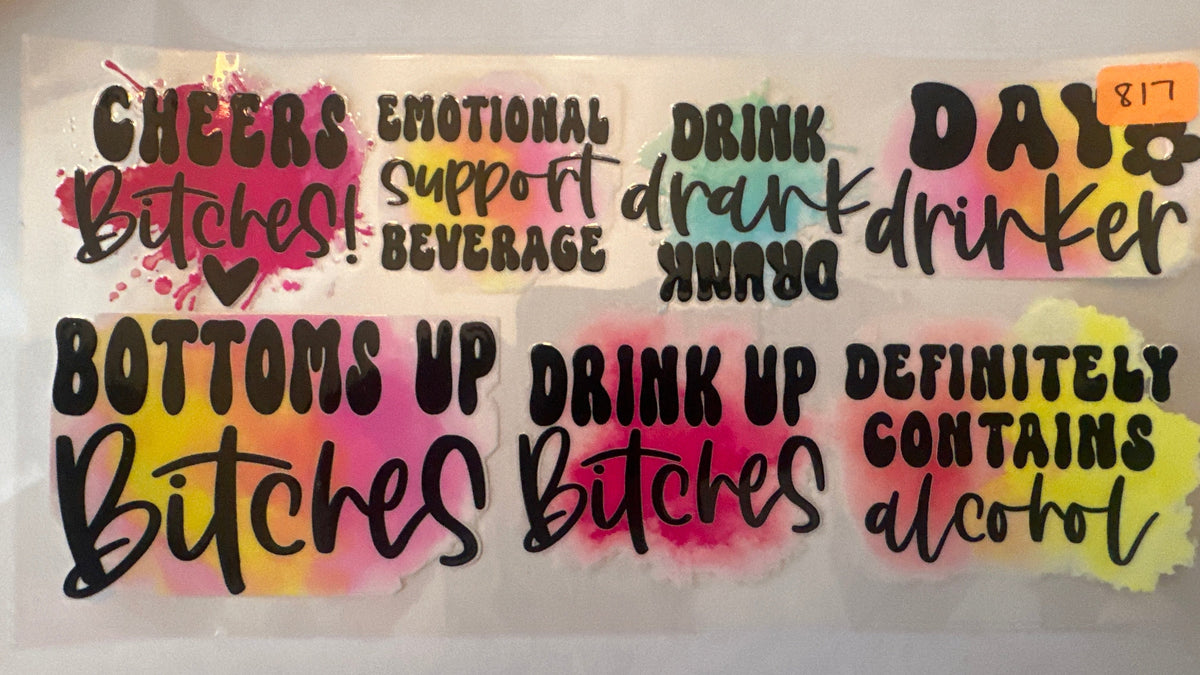 CHEERS
Bitches!
EMOTIONAL
support
BEVERAGE
DRINK
drank
DRUNK
DAY
drinker
817
BOTTOMS UP
Bitches
DRINK UP
Bitches
DEFINITELY
CONTAINS
alcohol